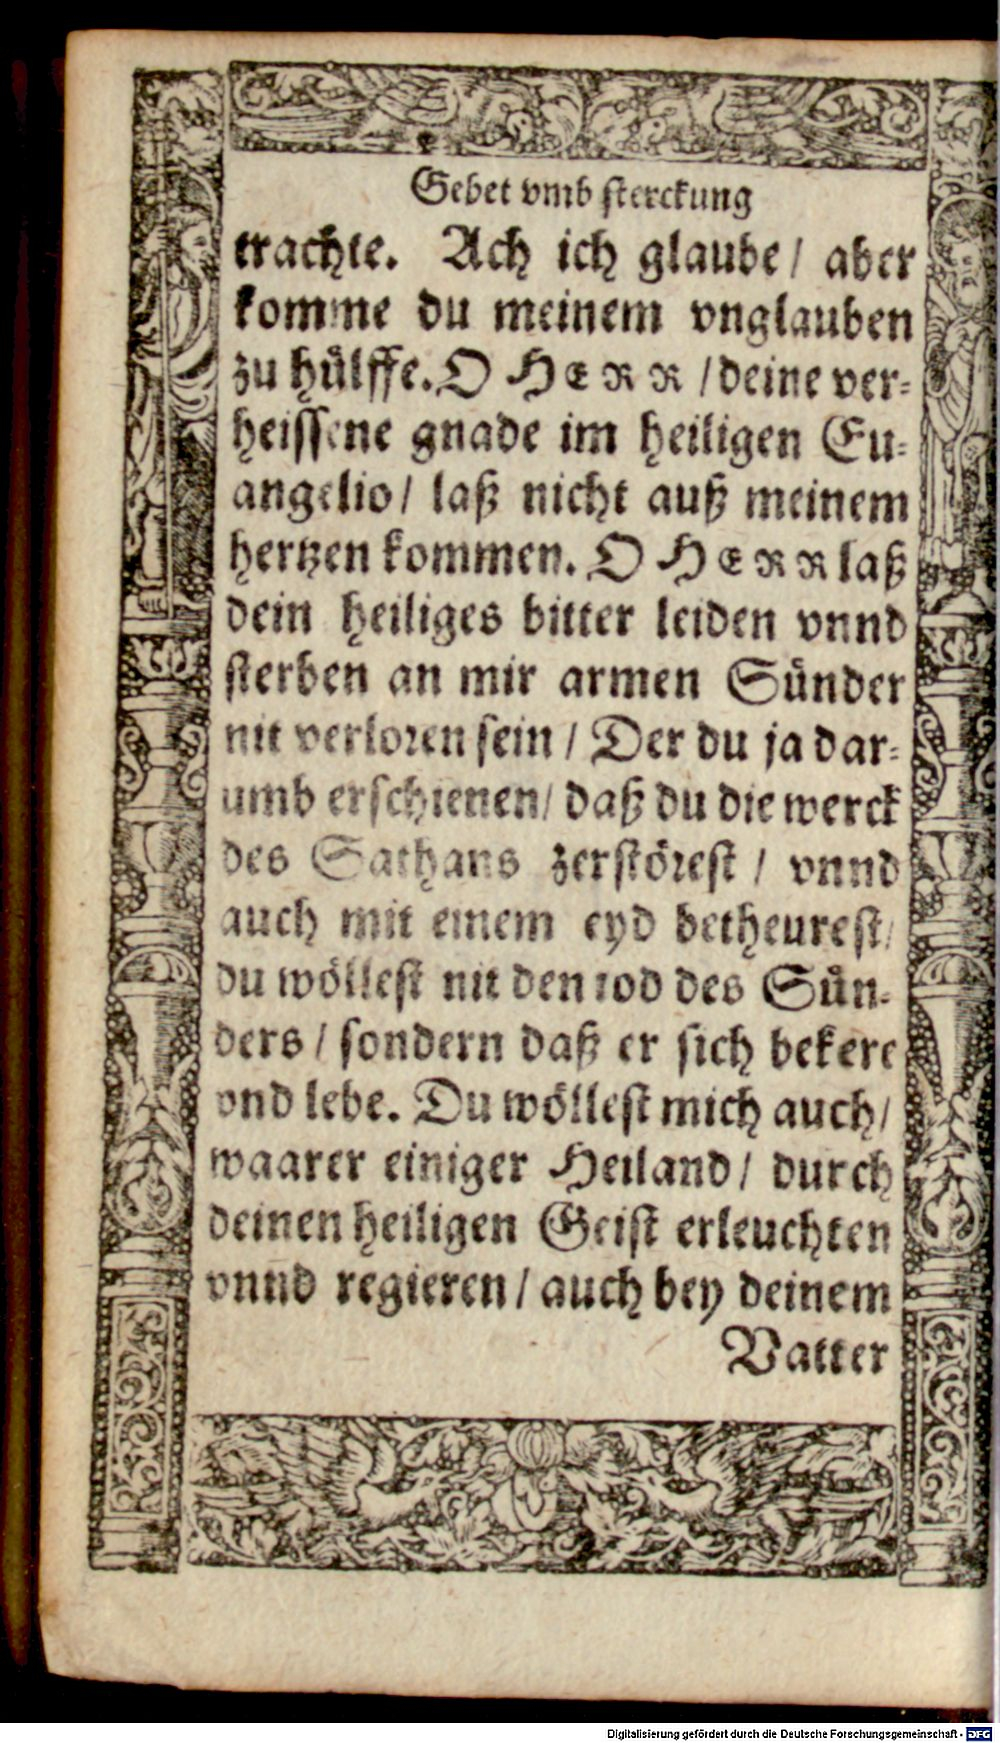 Gebet vmb sterckung
trachte. Ach ich glaube / aber
komme du meinem vnglauben
zu hülffe. O HERR / deine ver-
heissene gnade im heiligen Eu-
angelio / laß nicht auß meinem
hertzen kommen. O HERR laß
dein heiliges bitter leiden vnnd
sterben an mir armen Sünder
nit verloren sein / Der du ja dar-
umb erschienen / daß du die werck
des Sathans zerstörest / vnnd
auch mit einem eyd betheurest /
du wöllest nit den tod des Sün-
ders / sondern daß er sich bekere
vnd lebe. Du wöllest mich auch /
waarer einiger Heiland / durch
deinen heiligen Geist erleuchten
vnnd regieren / auch bey deinem
Vatter
Digitalisierung gefördert durch die Deutsche Forschungsgemeinschaft - DFG